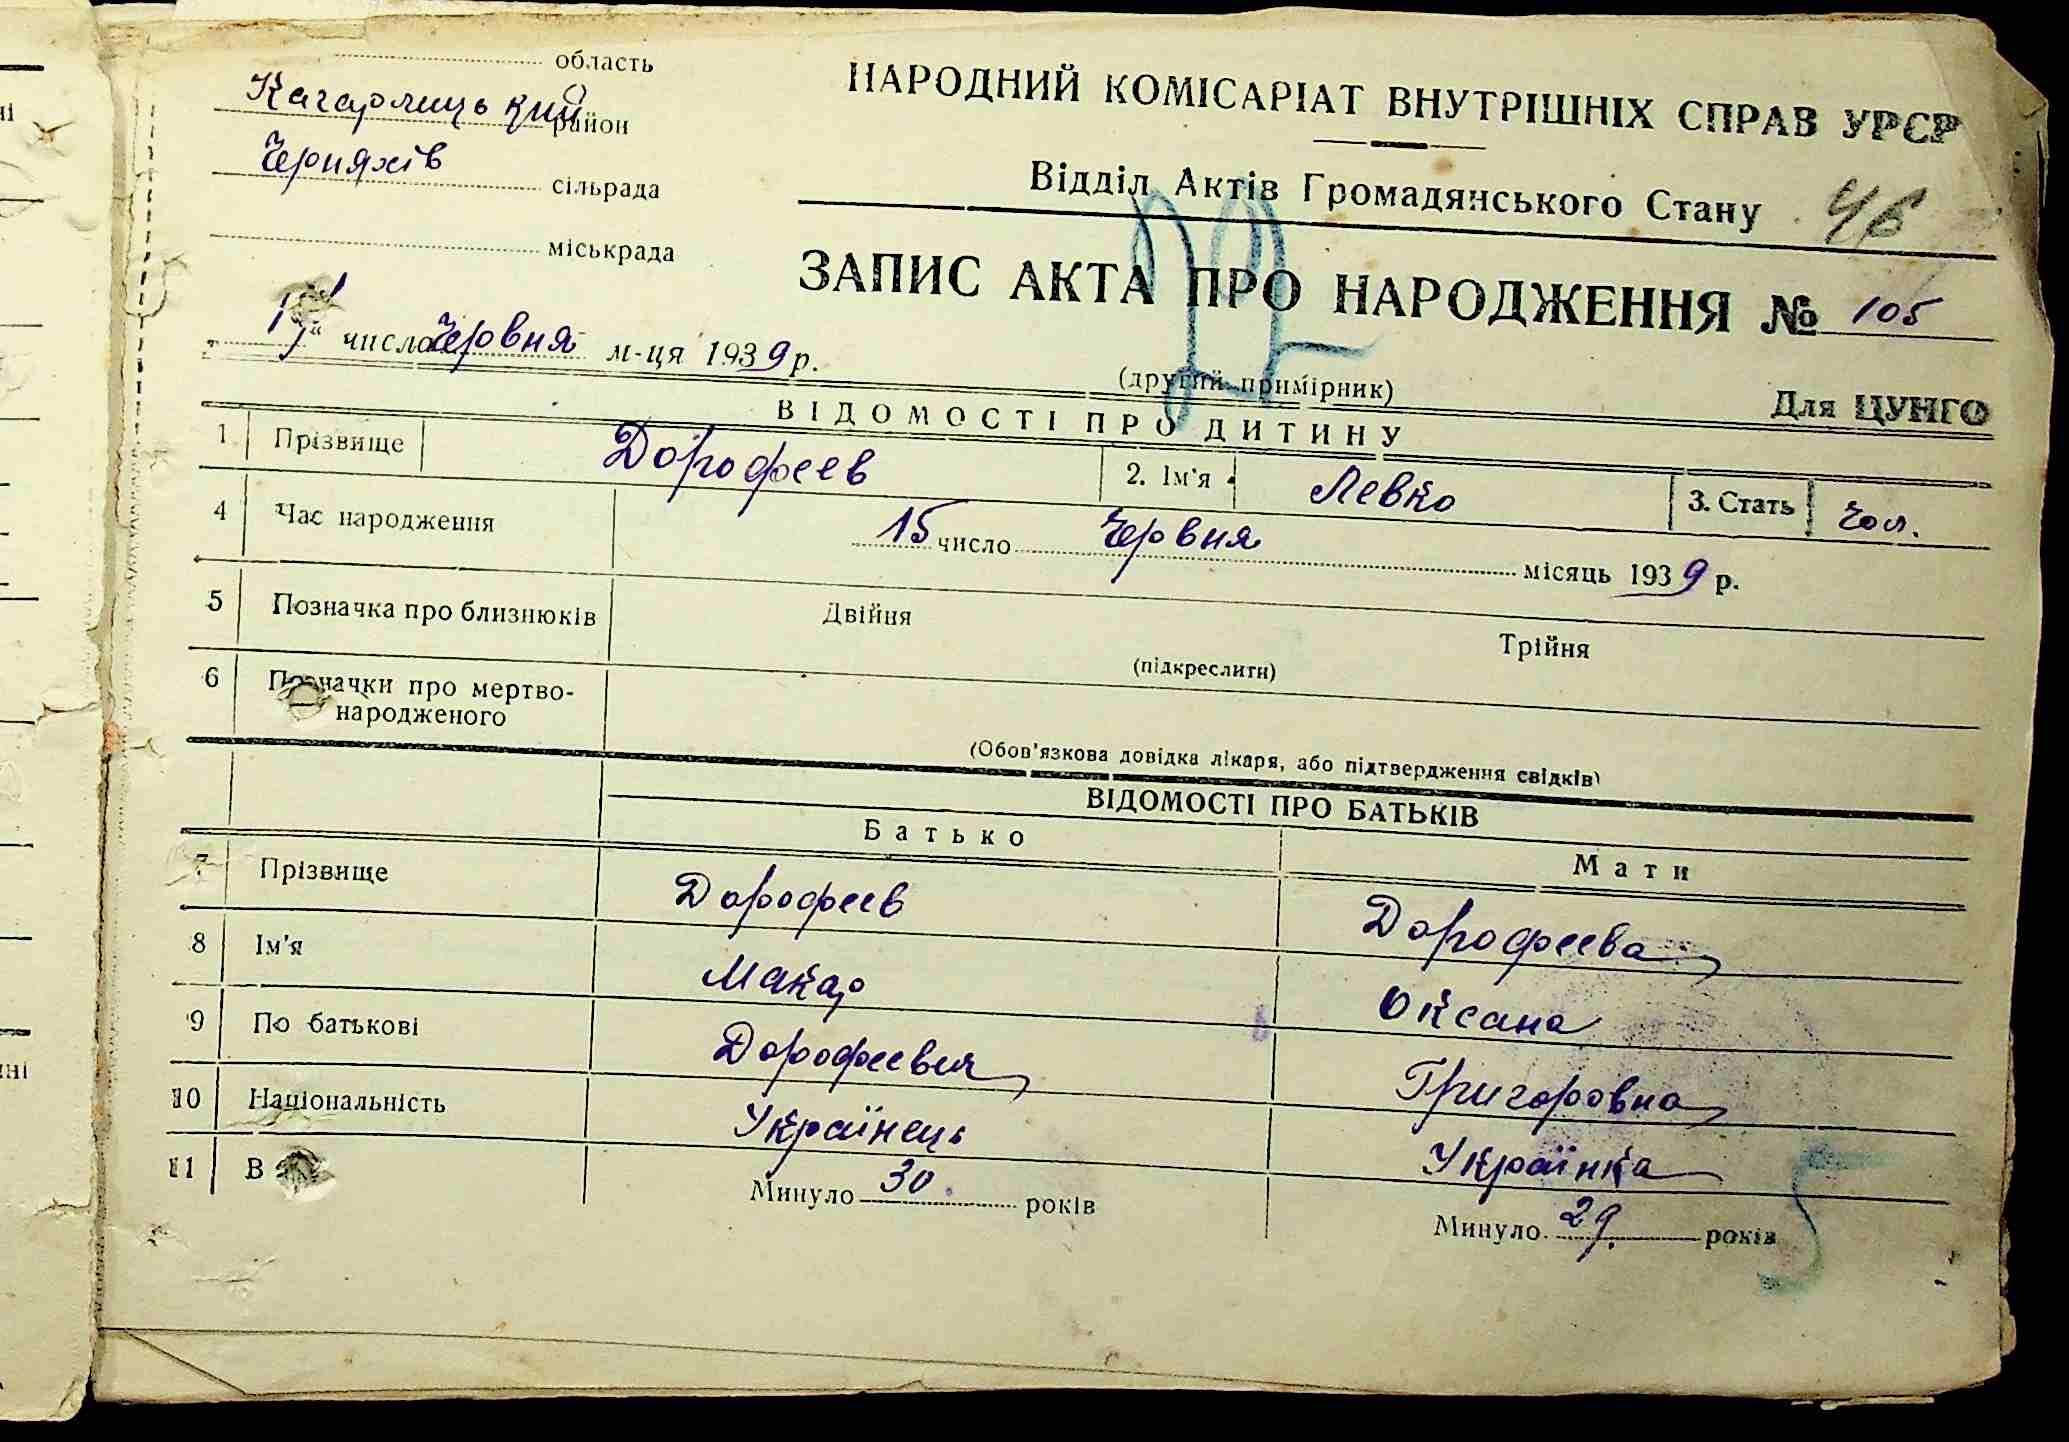 область
Кагарлицький район
Черняхів сільрада
міськрада
НАРОДНИЙ КОМІСАРІАТ ВНУТРІШНІХ СПРАВ УРСР
Відділ Актів Громадянського Стану
ЗАПИС АКТА ПРО НАРОДЖЕННЯ № 105
число Червня м-ця 1939 р.
(другий примірник)
Для ЦУНГО
ВІДОМОСТІ ПРО ДИТИНУ
1 Прізвище Дорофеев 2. Ім'я Левко 3. Стать Чол.
4 Час народження 15 число Червня місяць 1939 р.
5 Позначка про близнюків Двійня Трійня
(підкреслити)
6 Позначки про мертво-
народженого
(Обов'язкова довідка лікаря, або підтвердження свідків)
ВІДОМОСТІ ПРО БАТЬКІВ
Батько Мати
7 Прізвище Дорофеев Дорофеева
8 Ім'я Макар Оксана
9 По батькові Дорофеевич Григоровна
10 Національність Українець Українка
11 В Минуло 30 років Минуло 29. років